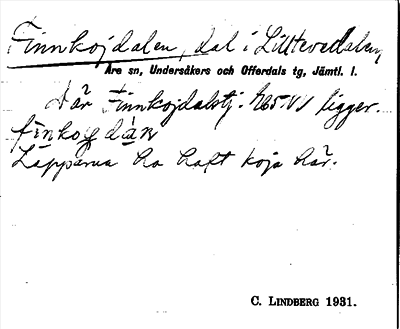 Finnkojdalen, dal i Littevedalen,
Åre sn, Undersåkers och Offerdals tg, Jämtl. l.
där Finnkojdalstj. ligger.
finkojdàn
Lapparna ha haft koja här.
C. LINDBERG 1931.